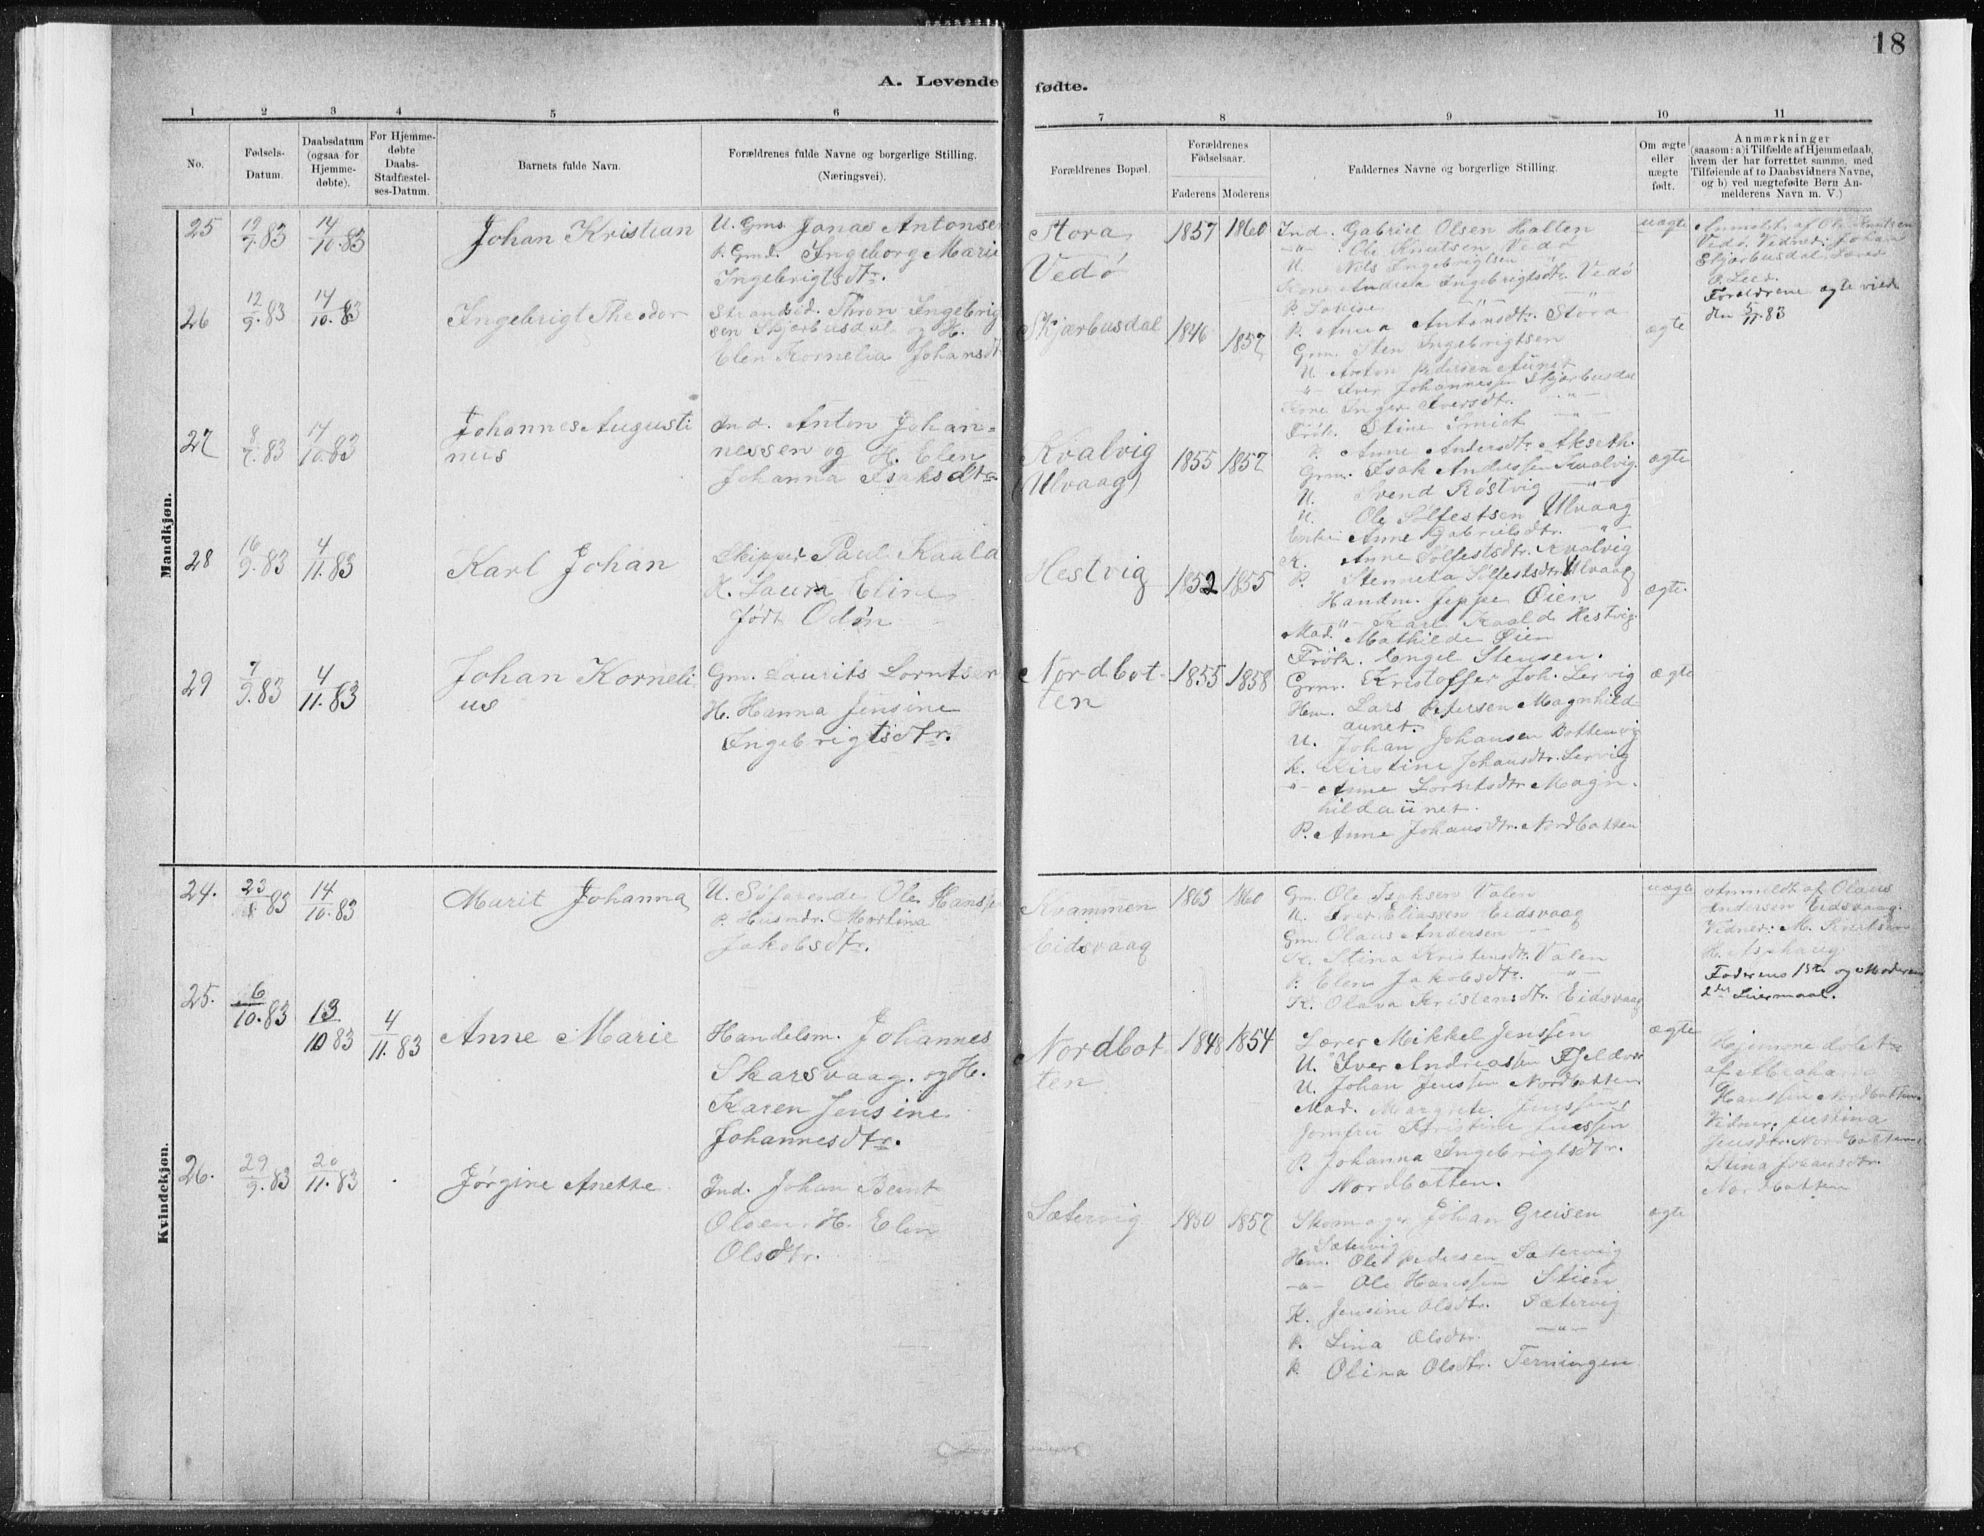 18
A. Levende fødte.
1 2 3 4 5 6 7 8 9 10 11
No.
Fødsels-
Datum.
Daabsdatum
(ogsaa for
Hjemme-
døbte).
For Hjemme-
døbte
Daabs-
Stadfæstel-
ses-Datum.
Barnets fulde Navn.
Forældrenes fulde Navne og borgerlige Stilling.
(Næringsvei).
Forældrenes Bopæl.
Forældrenes
Fødselsaar.
Faderens Moderens
Faddernes Navne og borgerlige Stilling.
Om ægte
eller
uægte
født.
Anmærkninger
(saasom: a) i Tilfælde af Hjemmedaab,
hvem der har forrettet samme, med
Tilføiende af to Daabsvidners Navne,
og b) ved uægtefødte Børn An-
melderens Navn m. V.)
Mandkjøn.
25
12/9.83
14/10.83
Johan Kristian
U. Gms Jonas Antonsen
P. Gmd. Ingeborg Marie
Ingebrigtsdtr.
Stora
Vedø
1857 1860
Ind. Gabriel Olsen Halten
-"- Ole Knutsen Vedø
U. Nils Ingebrigtsen -"-
Kone Andrea Ingebrigtsdtr. Vedø
P. Lovise -"- -"-
P. Anna Antonsdtr. Stora
uægte
Anmeldt af Ole Knutsen
Vedø. Vidner: Johan
Skjærbusdal, Lærer
Forældrene ægteviede
den 5/11.83
26
12/9.83
14/10.83
Ingebrigt Theodor
Strandsid. Thron Ingebrigt
sen Skjærbusdal og H.
Elen Kornelia Johansdtr
Skjærbusdal
1846 1857
Grm. Sten Ingebrigtsen
U. Anton Pedersen Aunet
-"- Iver Johannessen Skjærbusdal
Kone Inger Iversdtr. -"-
Frøk. Stine Smich -"-
P. Anne Andersdtr. Akseth.
ægte
27
8/7.83
14/10.83
Johannes Augusti
nus
Ind. Anton Johan=
nessen og H. Elen
Johanna Isaksdtr.
Kvalvig
(Ulvaag)
1855 1857
Grm. Isak Anderssen Kvalvig
U. Svend Røstvig -"-
U. Ole Solfestsen Ulvaag
Enke Anne Gabrielsdtr. -"-
K. Anne Solfestsdtr. Kvalvig
P. Stenneta Solfestsdtr Ulvaag
ægte
28
16/9.83
4/11.83
Karl Johan
Skipper Paul Kaald
H. Laura Eline
født Odøn
Hestvig
1852 1855
Handm. Jeppe Øien
-"- Karl Kaald Hestvig
Mad. Mathilde Øien
Frøk. Engel Stensen.
ægte.
29
7/9.83
4/11.83
Johan Korneli
us
Gm. Laurits Lorntsen
H. Hanna Jensine
Ingebrigtsdtr.
Nordbot-
ten
1855 1858
Grm. Kristoffer Joh. Lervig
Hem. Lars Petersen Magnhild
aunet.
U. Johan Johansen Bottenvig
K. Kirstine Johansdtr. Lervig
-"- Anne Lorntsdtr Magn-
hildaunet.
P. Anne Johansdtr. Nordbotten
ægte
Kvindekjøn.
24.
14/10.83
Marit Johanna
U. Søfarende Ole Hansen
P. Husmdr. Mortina
Jakobsdtr.
Kvammen
Eidsvaag
1863 1860
Gm. Ole Isaksen Valen
U. Iver Eliassen Eidsvaag
Gm. Olaus Andersen -"-
K. Stina Kristensdtr. Valen
P. Elen Jakobsdtr. -"-
K. Olava Kristensdtr. Eidsvaag
uægte
Anmeldt af Olaus
Andersen Eidsvaag.
Vidner: M. Knutsen
H. Ashaug.
Faderens 1ste og Moderens
2det Leiermaal.
25.
6/10.83
13/10 83
4/11.83
Anne Marie
Handelsm. Johannes
Skarsvaag. og H.
Karen Jensine
Johannesdtr.
Nordbot
ten
1848 1854
Lærer Mikkel Jenssen
U. Iver Andreassen Fjeldvær
U. Johan Jenssen Nordbotten
Mad. Margrete Jenssen,
Jomfru Kristine Jenssen
P. Johanna Ingebrigtsdtr.
Nordbotten.
ægte
Hjemmedøbt
af Abraham
Hanssen Nordbotten
Vidner: Justina
Jensdtr. Nordbotten
Stina Johansdtr.
Nordbotten
26.
29/9.83
20/11.83
Jørgine Anette
Ind. Johan Bernt
Olsen. H. Elen
Olsdtr.
Sætervig
1850 1857
Skomager Johan Greisen
Sætervig
Hem. Ole Pedersen Sætervig
-"- Ole Hanssen Stien
K. Jensine Olsdtr. Sætervig
P. Lina Olsdtr. -"-
P. Olina Olsdtr. Terningen
ægte